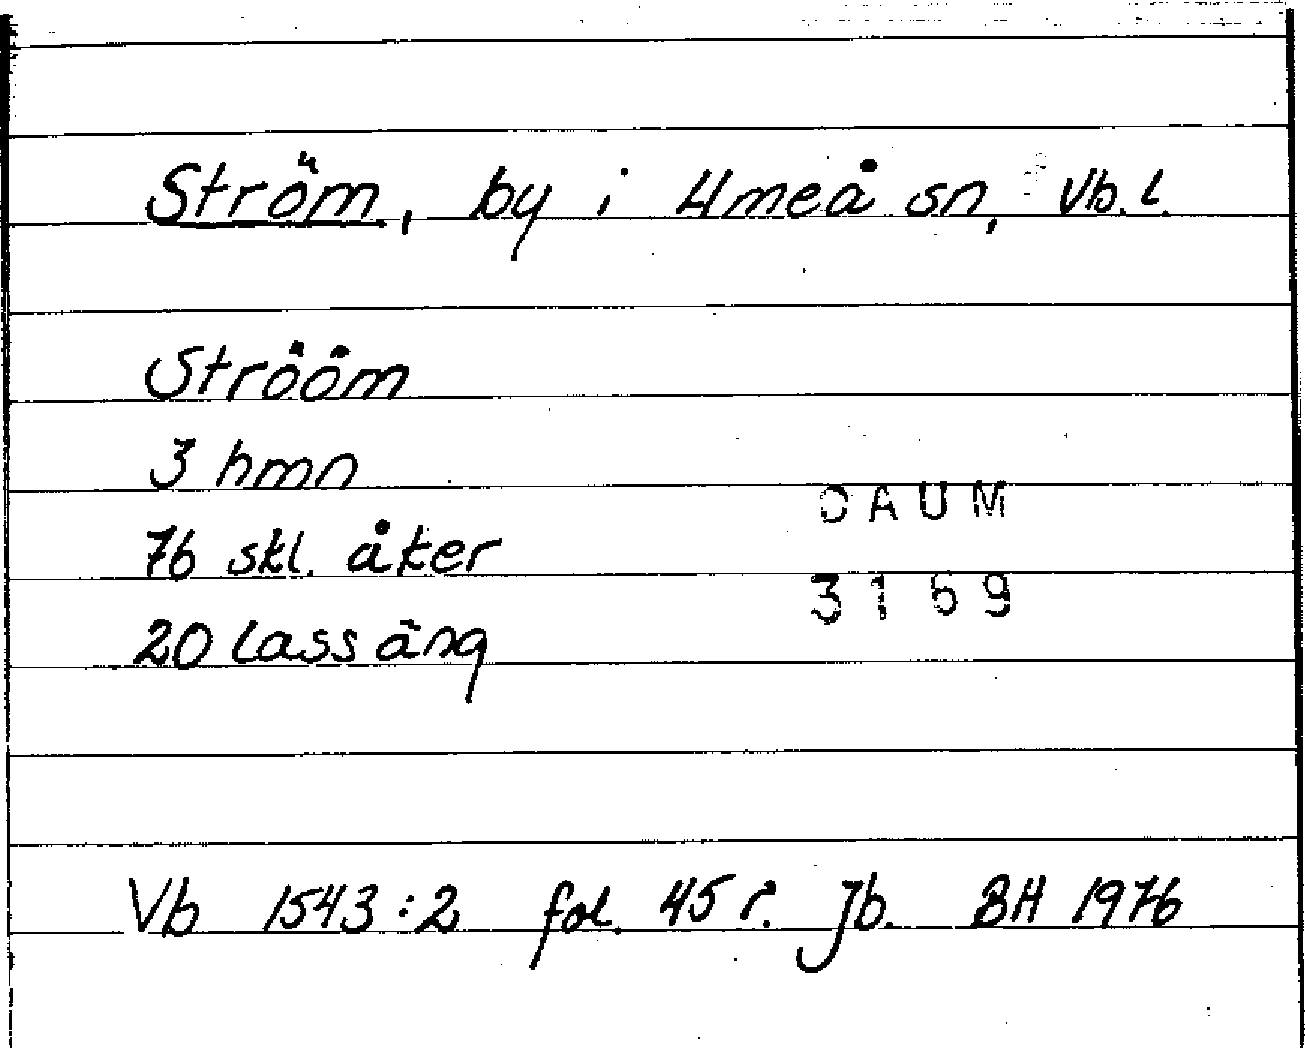 Ström, by i Umeå sn, Vb. l.
Strööm
3 hmn
DAUM
76 skl. åker
3169
20 lass äng
Vb 1543:2 fol. 45 r. Jb. BH 1976